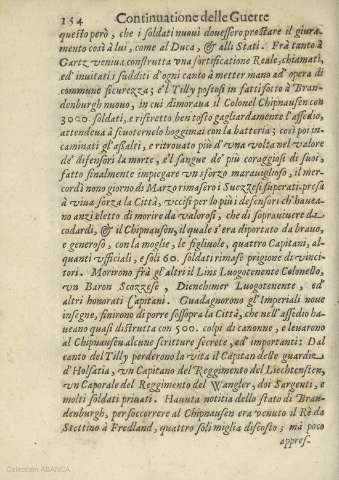 154 Continuatione delle Guerre
questo però, che i soldati nuovi douessero prestare il giura-
mento così à lui, come al Duca, & alli Stati. Frà tanto à
Gartz veniua construtta vna fortificatione Reale, chiamati,
ed' inuitati i sudditi d'ogni canto à metter mano ad' opera di
commune sicurezza; e'l Tilly postosi in fatti sotto à Bran-
denburgh nuouo, in cui dimoraua il Colonel Chipnausen con
3000. soldati, e ristretto ben tosto gagliardamente l'assedio,
attendeua à scuoternelo hoggimai con la batteria; così poi in-
caminati gl'assalti, e ritrouato più d'vna volta nel valore
de' difensori la morte, e'l sangue de' più coraggiosi di suoi,
fatto finalmente impiegare vn sforzo marauiglioso, il mer-
cordì nono giorno di Marzo rimasero i Suezzesi superati, presa
à viua forza la Città, vccisi per lo più i defensori ch'hauea-
no anzi eletto di morire da valorosi, che di soprauiuere da
codardi, & il Chipnausen, il quale s'era diportato da brauo,
e generoso, con la moglie, le figliuole, quattro Capitani, al-
quanti vfficiali, e soli 60. soldati rimase prigione di vinci-
tori. Morirono frà gl'altri il Lins Luogotenente Colonello,
vn Baron Scozzese, Dienehimer Luogotenente, ed'
altri honorati Capitani. Guadagnorono gl'Imperiali noue
insegne, finirono di porre sossopra la Città, che nell'assedio ha-
ueano quasi distrutta con 500. colpi di canonne, e leuarono
al Chipnausen alcune scritture secrete, ed' importanti: Dal
canto del Tilly perderono la vita il Capitan delle guardie
d'Holsatia, vn Capitano del Reggimento del Liechtensten,
vn Caporale del Reggimento del Wangler, doi Sargenti, e
molti soldati priuati. Hauuta notitia dello stato di Bran-
denburgh, per soccorrere al Chipnausen era venuto il Rè da
Stettino à Fredland, quattro soli miglia discosto; mà poco
appres-
Colección ABANCA